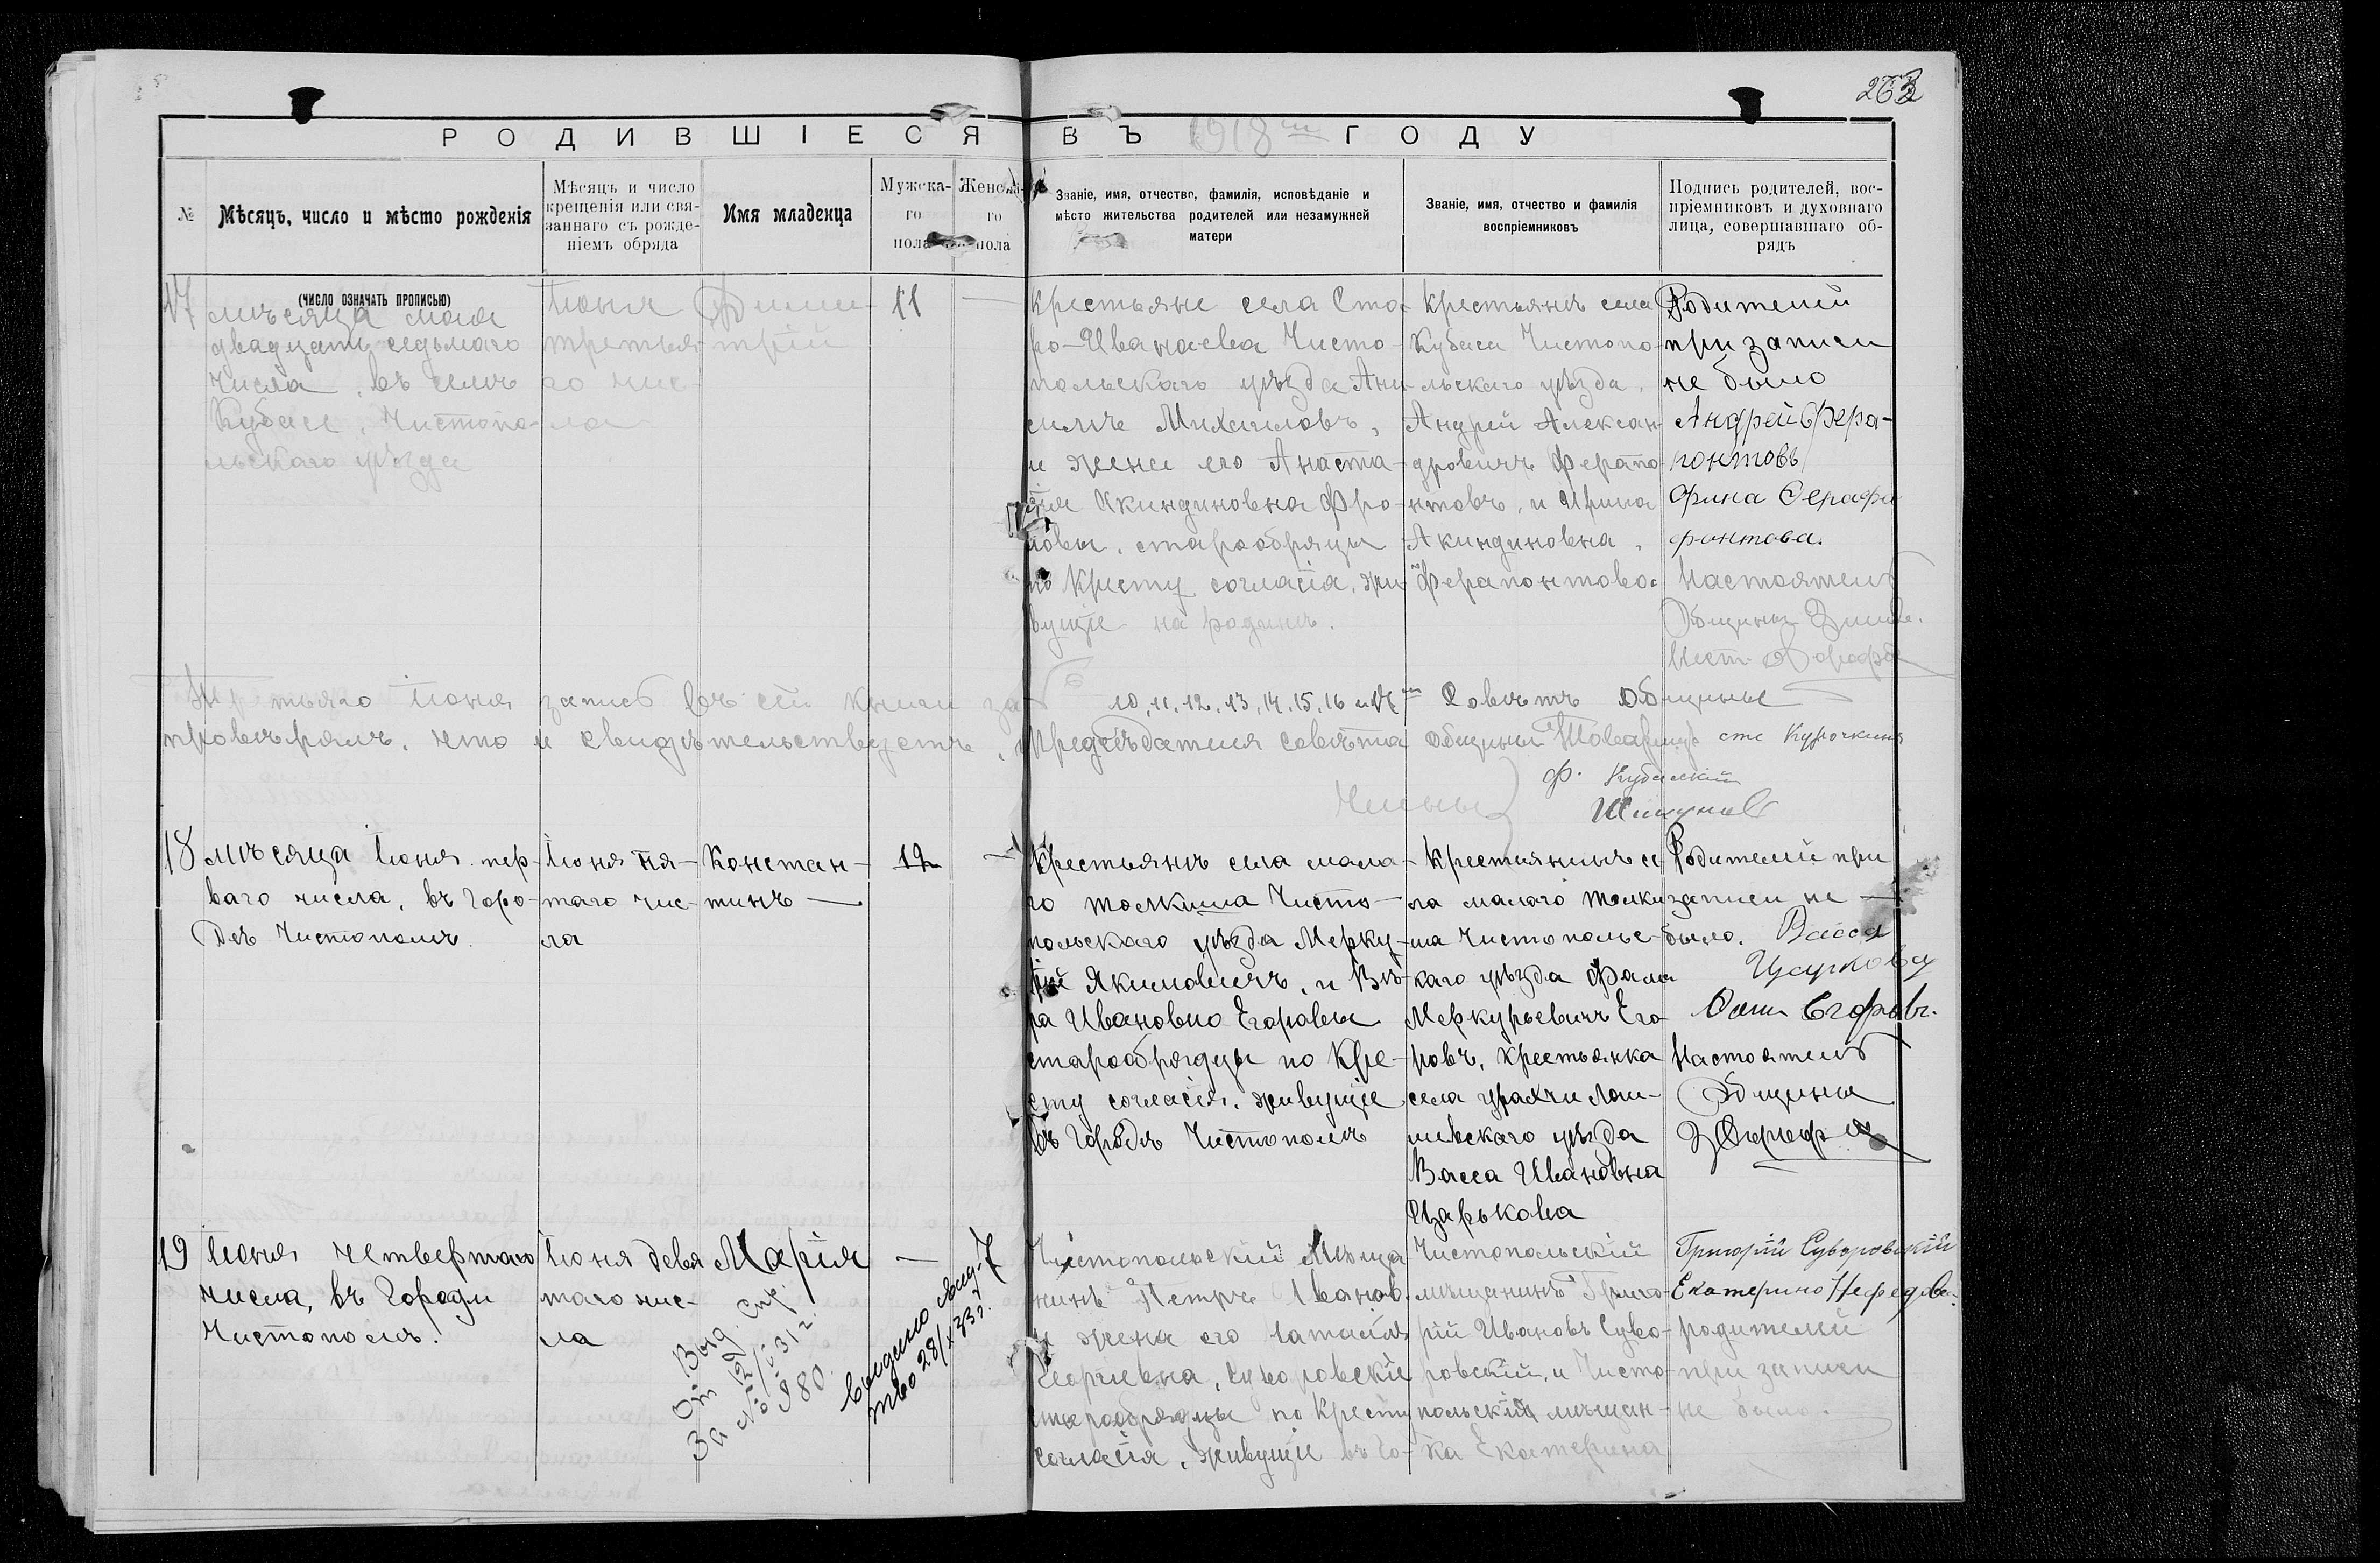 263
РОДИВШІЕСЯ ВЪ 1918 ГОДУ
№
Мѣсяцъ, число и мѣсто рожденія
Мѣсяцъ и число
крещенія или свя-
заннаго съ рожде-
ніемъ обряда
Имя младенца
Мужска-
го
пола
Женска-
го
пола
Званіе, имя, отчество, фамилія, исповѣданіе и
мѣсто жительства родителей или незамужней
матери
Званіе, имя, отчество и фамилія
воспріемниковъ
Подпись родителей, вос-
пріемниковъ и духовнаго
лица, совершавшаго об-
рядъ
(ЧИСЛО ОЗНАЧАТЬ ПРОПИСЬЮ)
17
мѣсяца мая
двадцать седьмого
числа, въ селѣ
Кубасе, Чистопо-
льскаго уѣзда
Іюня
третья-
го чис-
ла
Дими-
трій
11
—
Крестьяне села Ста-
ро-Иванаева Чисто-
польскаго уѣзда Ани-
Михаиловъ,
и жена его Анаста-
сія Акиндиновна Фро-
ловы, старообрядцы
по Кресту согласія, жи-
вущіе на родинѣ.
Крестьянъ села
Кубаса Чистопо-
льскаго уѣзда,
Андрей Алексан-
дровичъ Ферапо-
нтовъ, и Ирина
Акиндиновна,
Ферапонтова
Родителей
при записи
не было
Андрей Фера-
понтовъ
фонтова.
Настоятель
Общины
Іюня запись въ сей книги за 10, 11, 12, 13, 14, 15, 16 и 17 Совѣтъ Общины
провѣрялъ, что и свидѣтельствуетъ, Председателя совѣта общины Курочкинъ
Члены
Ф. Кубаскій
18
мѣсяца Іюня пер-
ваго числа, въ горо-
де Чистополѣ
Іюня пя-
таго чис-
ла
Констан-
тинъ —
12
—
Крестьянъ села мала-
го толкиша Чисто-
польскаго уѣзда Мерку-
рій Якимовичъ, и Вѣ-
ра Ивановна Егоровы
старообрядцы по Кре-
сту согласія, живущіе
въ городѣ Чистополѣ
Крестьянинъ се-
ла малаго толки-
ша Чистопольс-
каго уѣзда
Меркурьевичъ Его-
ровъ, крестьянка
села урахчи Лаи-
шевскаго уѣзда
Васса Ивановна
Царькова
Родителей при
записи не —
было. Васса
Царькова
Егоровъ.
Настоятель
Общины
19
Іюня четвертаго
числа, въ Городи
Чистополѣ.
Іюня девя-
таго чис-
ла
Марія
—
7
Выд. Спр.
От 12/
За № 880
выдано свид-
тво 28/X 33 г.
Чистопольскій Мѣща-
нинъ Петръ Иванов.
и жена его Наталія
Георгіевна, Суворовскіе
старообрядцы по Кресту
согласія, живущіе въ го-
Чистопольскій
мѣщанинъ Григо-
рій Ивановъ Суво-
ровскій, и Чисто-
польская мѣщан-
ка Екатерина
Григорій Суворовскій
Екатерина Нефедова.
родителей
при записи
не было.